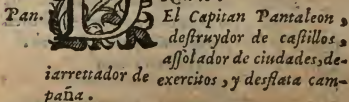 Pan. DEl Capitan Pantaleon,
destruydor de castillos,
assolador de ciudades, de-
iarrettador de exercitos, y desflata cam-
paña.